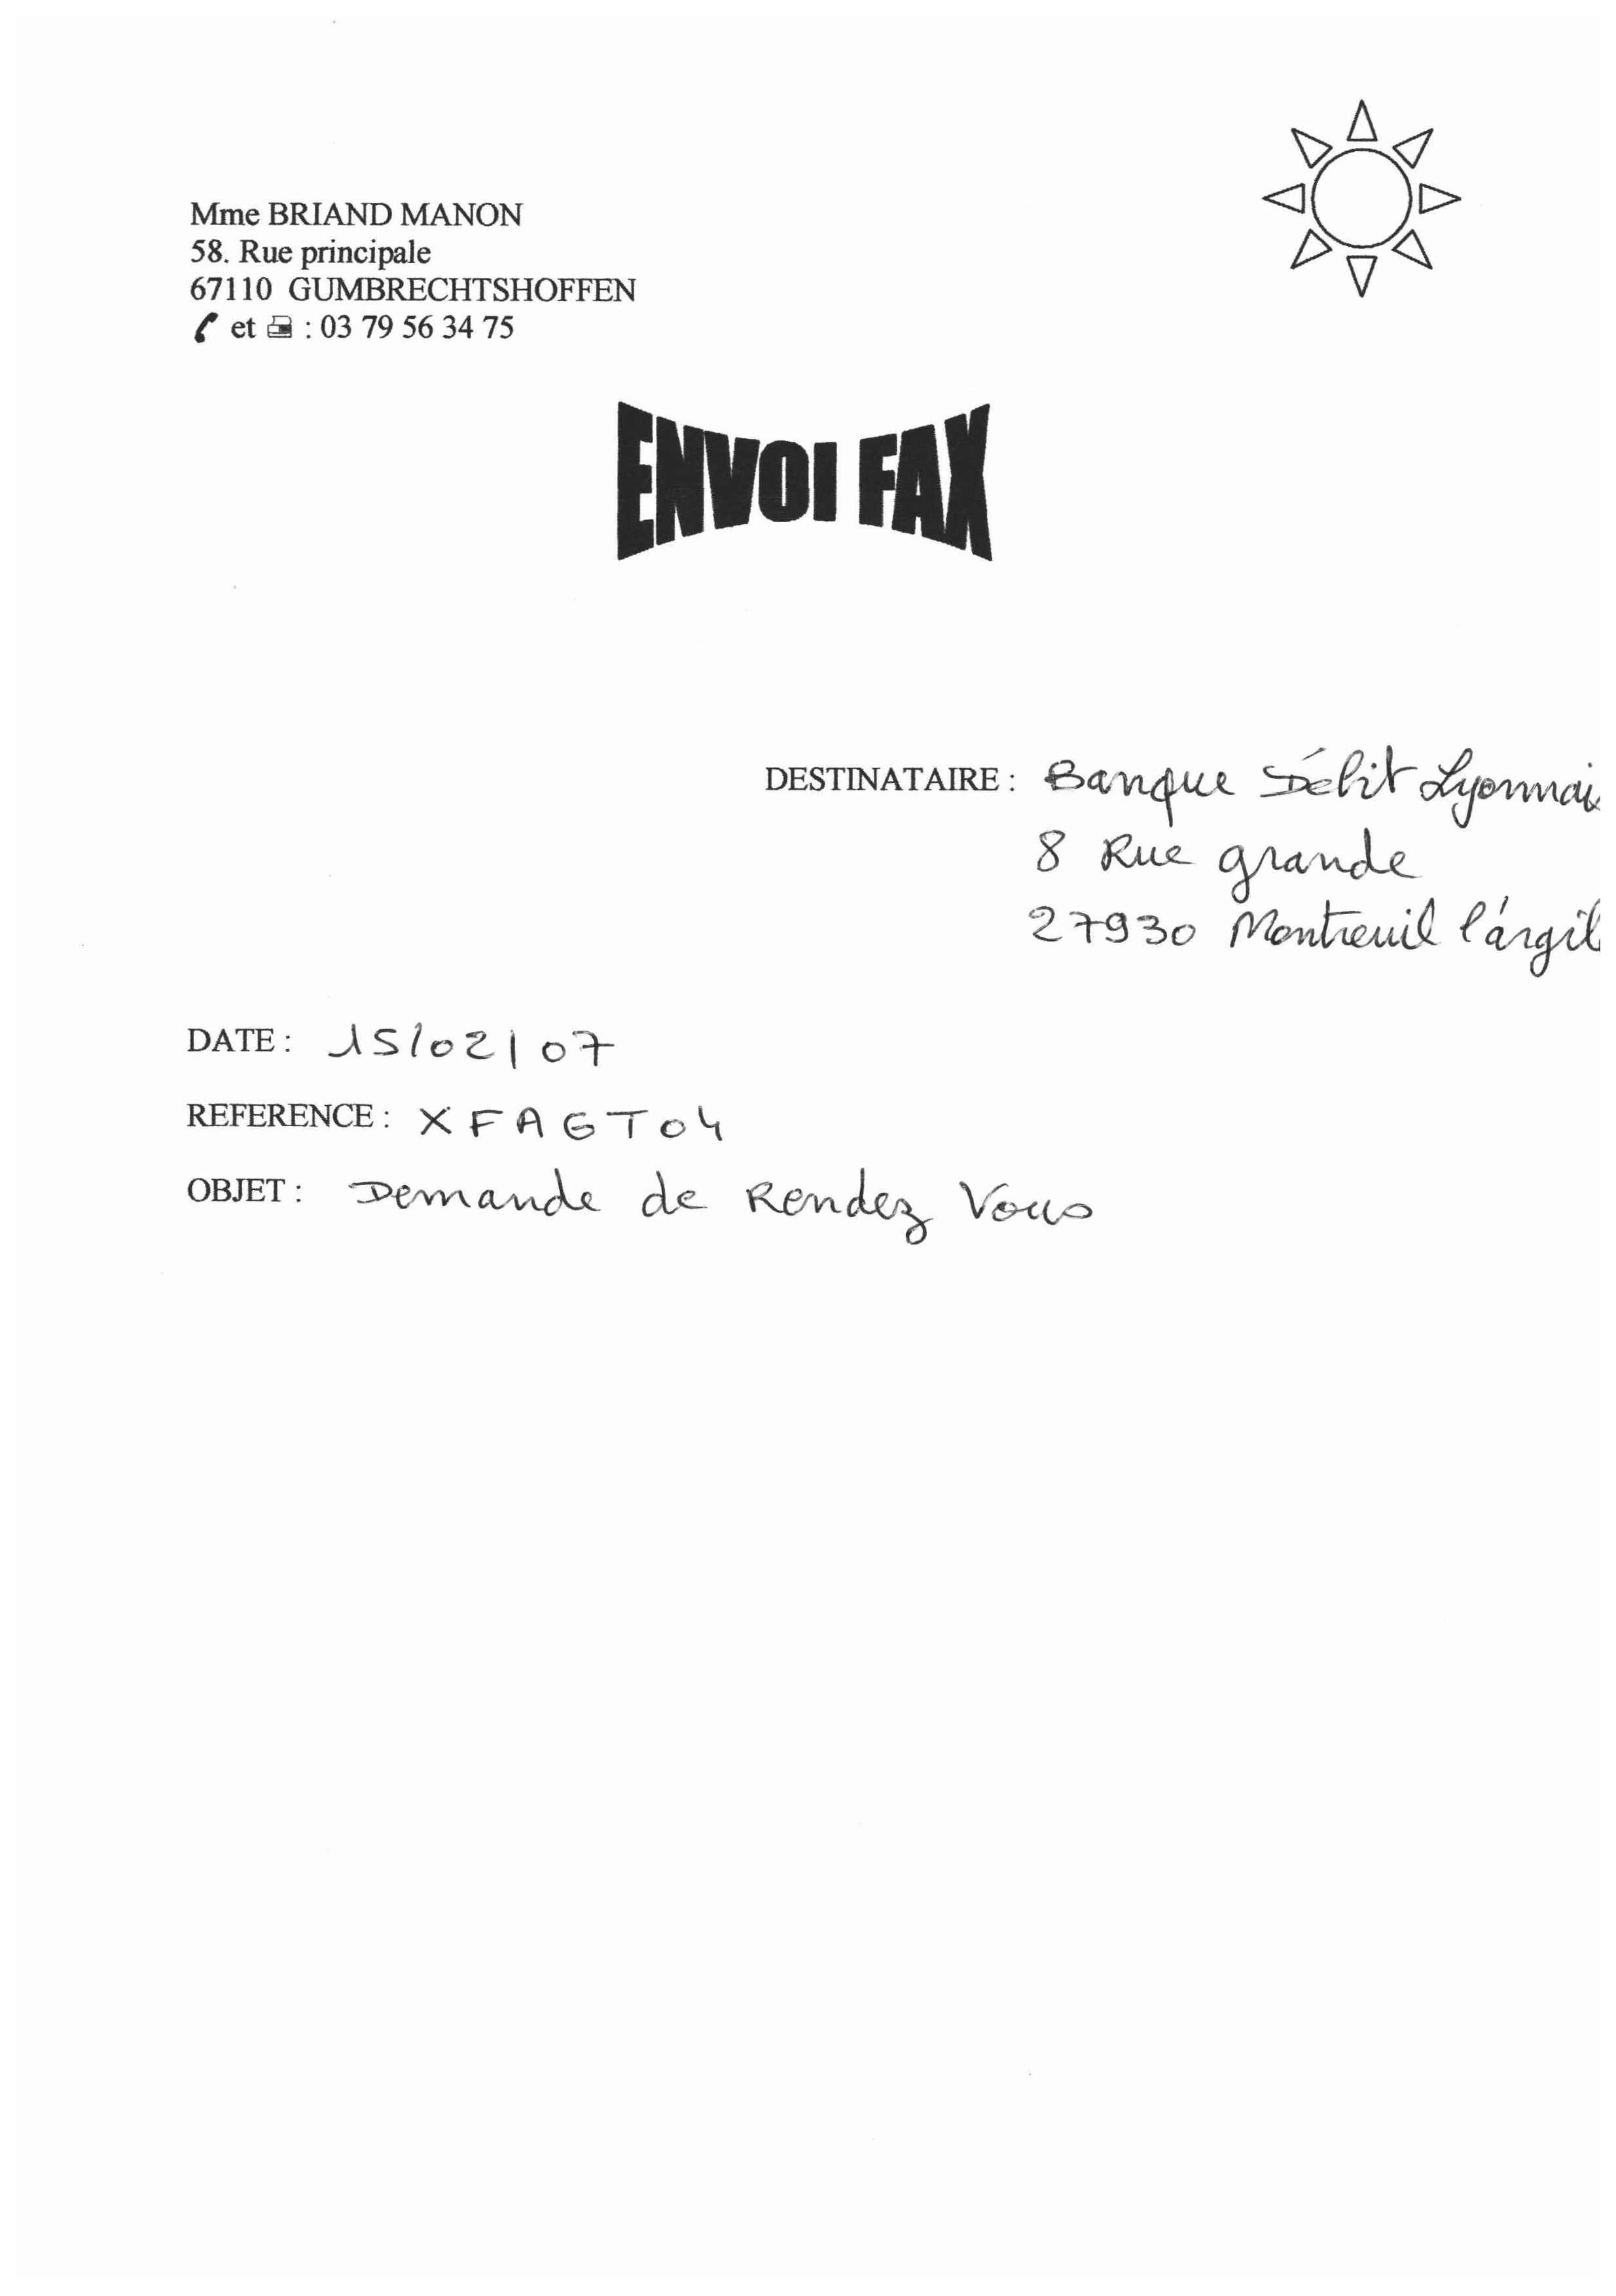 Mme BRIAND MANON
58. Rue principale
67110 GUMBRECHTSHOFFEN
et : 03 79 56 34 75
ENVOI FAX
DESTINATAIRE : Banque Débit Lyonnai
8 Rue grande
27930 Montreuil l'argil
DATE : 15/02/07
REFERENCE : XFAGT04
OBJET : Demande de Rendez Vous